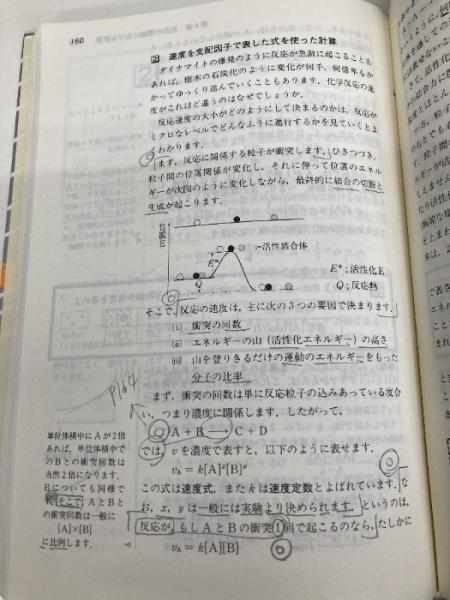 160
② 速度を支配因子で表した式を使った計算
ダイナマイトの爆発のように反応が急激に起こることも
あれば，樹木の石炭化のように変化が何千，何億年もか
かってゆっくり進んでいくこともあります．化学反応の速
度がこれほど違うのはなぜでしょうか．
反応速度の大小がどのようにして決まるのかは，反応が
ミクロなレベルでどんなふうに進行するかを見ていくとよ
くわかります．
まず，反応に関係する粒子が衝突します．ひきつづき，
粒子間の位置関係が変化し，それに伴って位置のエネル
ギーが次図のように変化しながら，最終的に結合の切断と
生成が起こります．
位置E
活性錯合体
E*
Q
E*；活性化E
Q；反応熱
そこで，反応の速度は，主に次の3つの要因で決まります．
(i) 衝突の回数
(ii) エネルギーの山（活性化エネルギー）の高さ
(iii) 山を登りきるだけの運動のエネルギーをもった
分子の比率
P164
まず，衝突の回数は単に反応粒子の込みあっている度合
い，つまり濃度に関係します．したがって，
A＋B ⟶ C＋D
では，vを濃度で表すと，以下のように表せます．
vA＝k[A]ˣ[B]ʸ
この式は速度式，またkは速度定数とよばれています．な
お，x，yは一般には実験より決められます．というのは，
反応が，もしAとBの衝突1回で起こるのなら，たしかに
vA＝k[A][B]
単位体積中にAが2倍
あれば，単位体積中で
のBとの衝突回数は
当然2倍になります．
Bについても同様で
そこで AとBと
の衝突回数は一般に
[A]×[B]
に比例します．